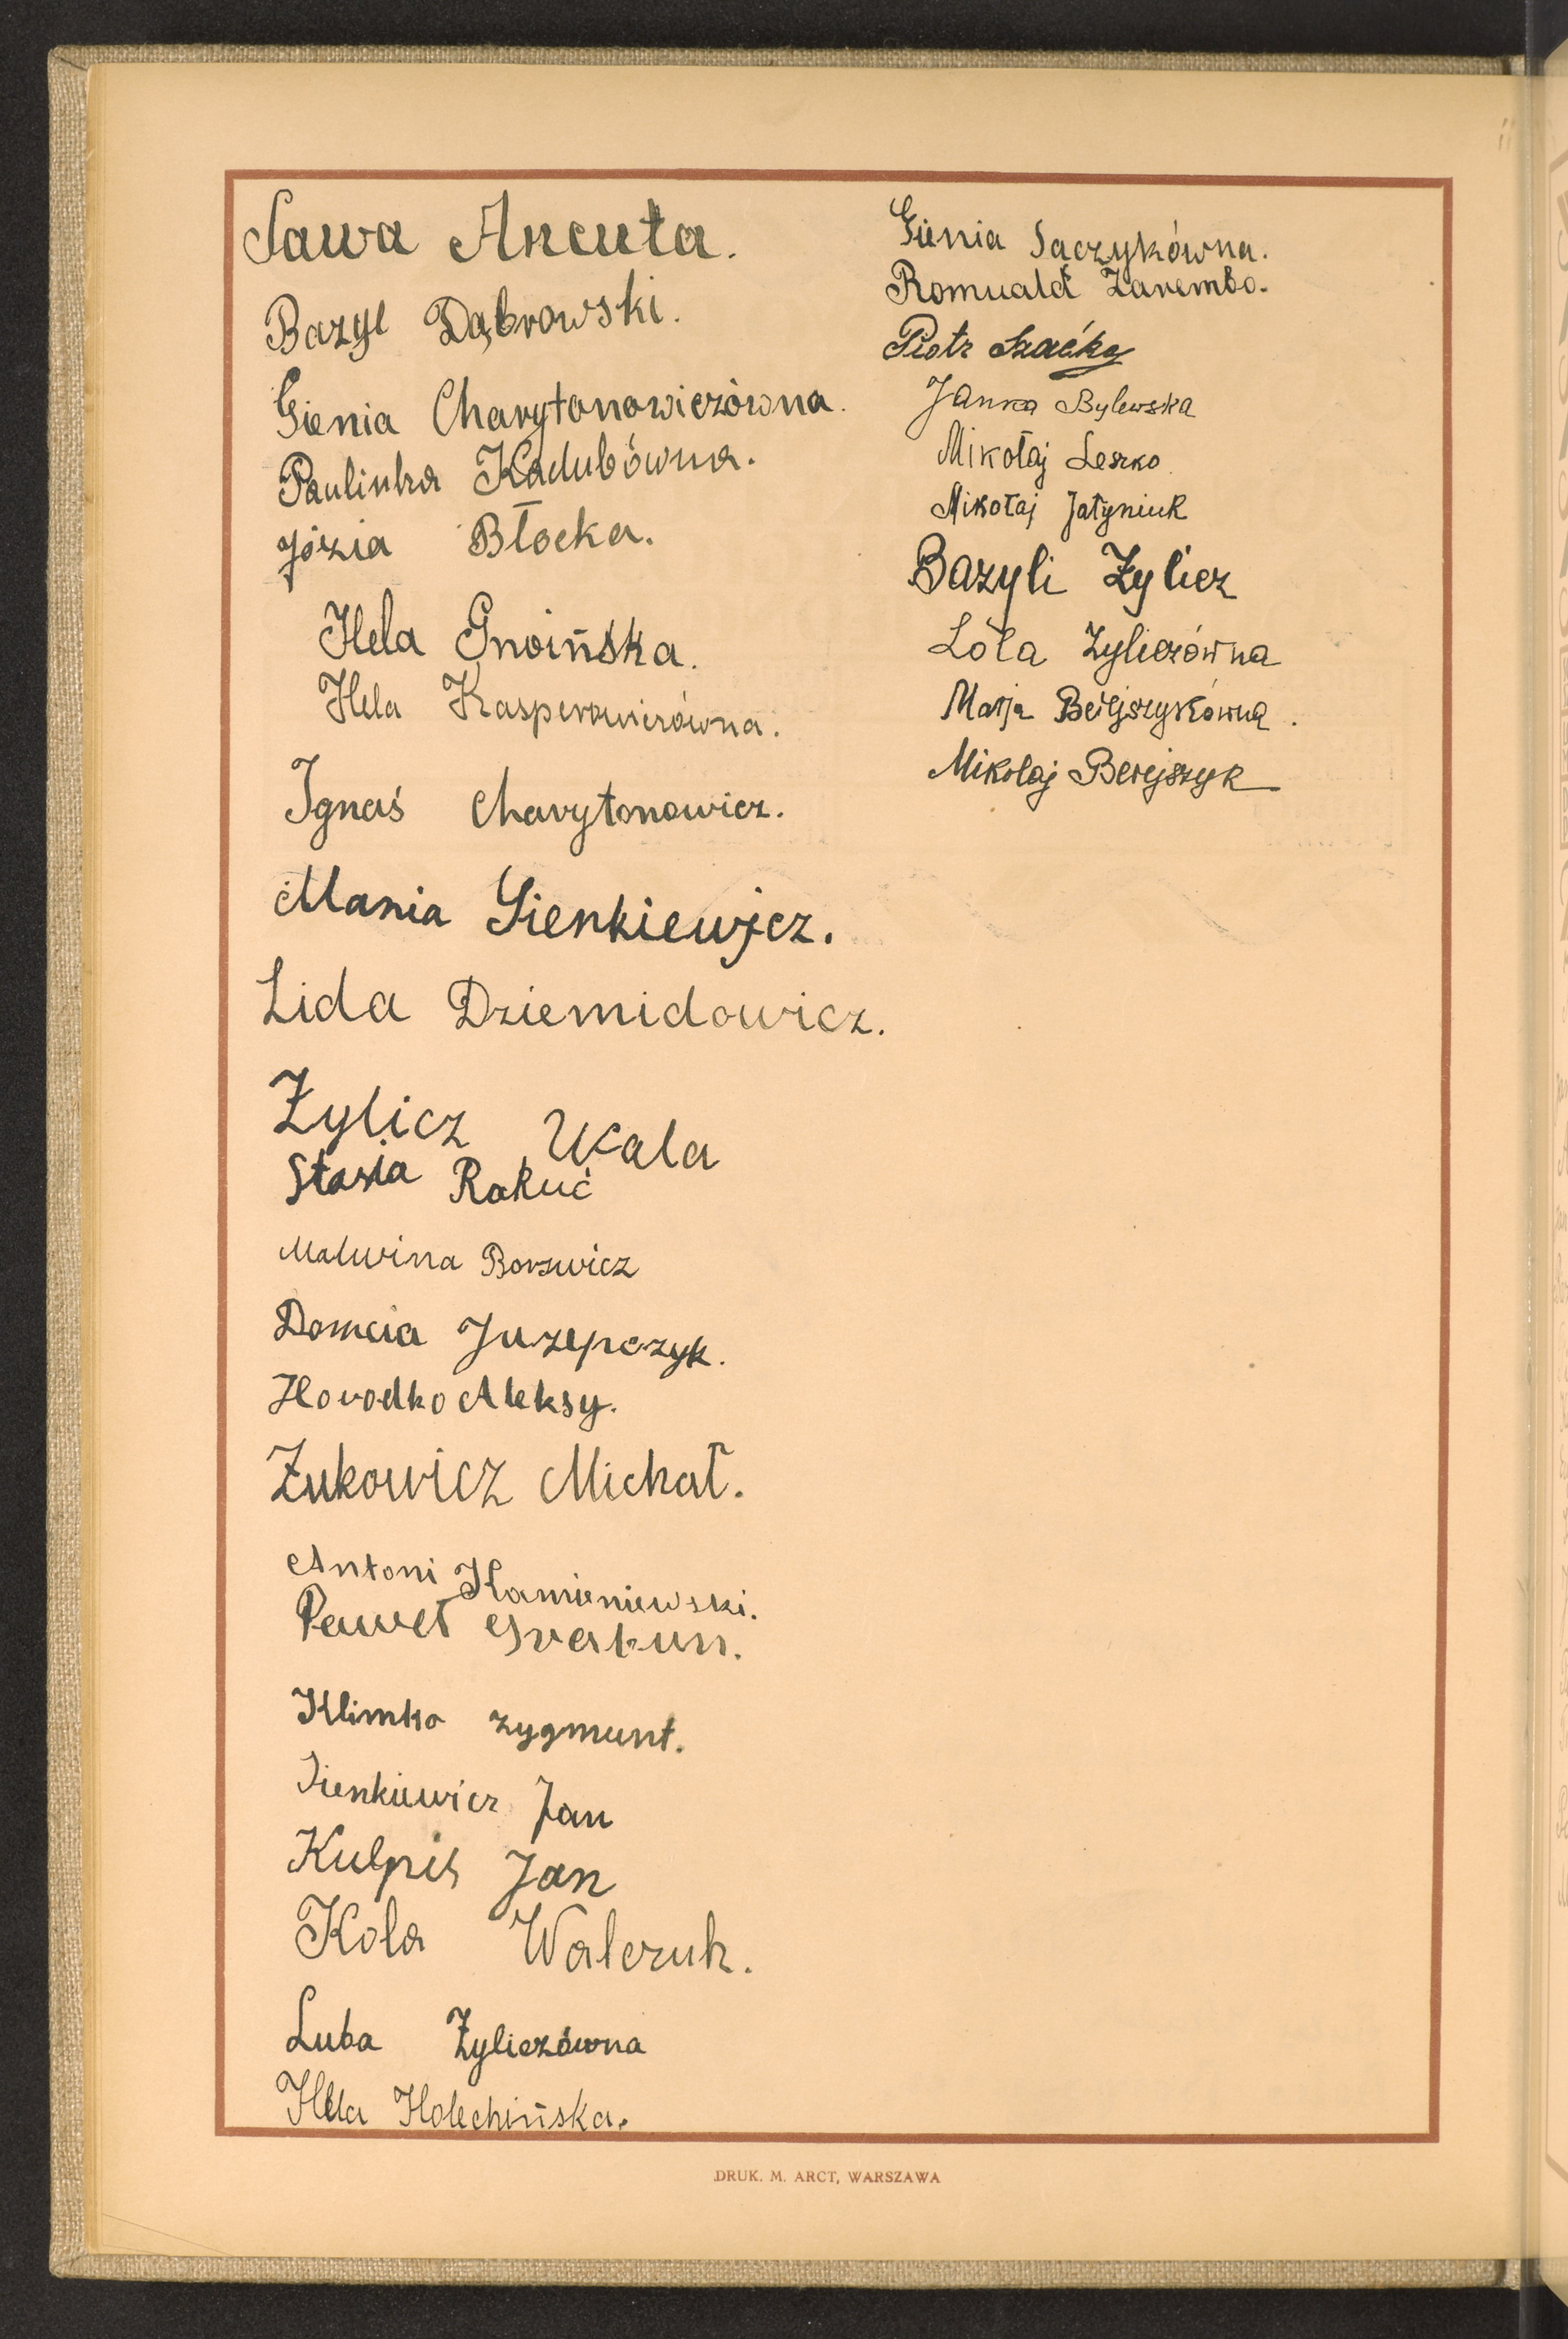 Sawa Ancuta.
Bazyl Dąbrowski.
Gienia Charytonowiczówna.
Paulinka Kadubówna.
Józia Błocka.
Hela Gnoińska.
Hela Kasperowiczówna.
Ignaś Charytonowicz.
Mania Sienkiewicz.
Lida Dziemidowicz.
Żylicz Wala
Stasia Rakuć
Malwina Borzwicz
Domcia Juzepczyk.
Horodko Aleksy.
Żukowicz Michał.
Antoni Kamieniewski.
Paweł Grakun.
Klimko Zygmunt.
Sienkiewicz Jan
Kulpis Jan
Kola Walczuk.
Luba Żyliczówna
Hela Holechińska.
Gienia Sączykówna.
Romuald Zarembo.
Piotr
Janka Bylewska
Mikołaj Leszko
Mikołaj Jatyniuk
Bazyli Żylicz
Lola Żyliczówna
Marja Berejszykówna.
Mikołaj Berejszyk
DRUK. M. ARCT, WARSZAWA